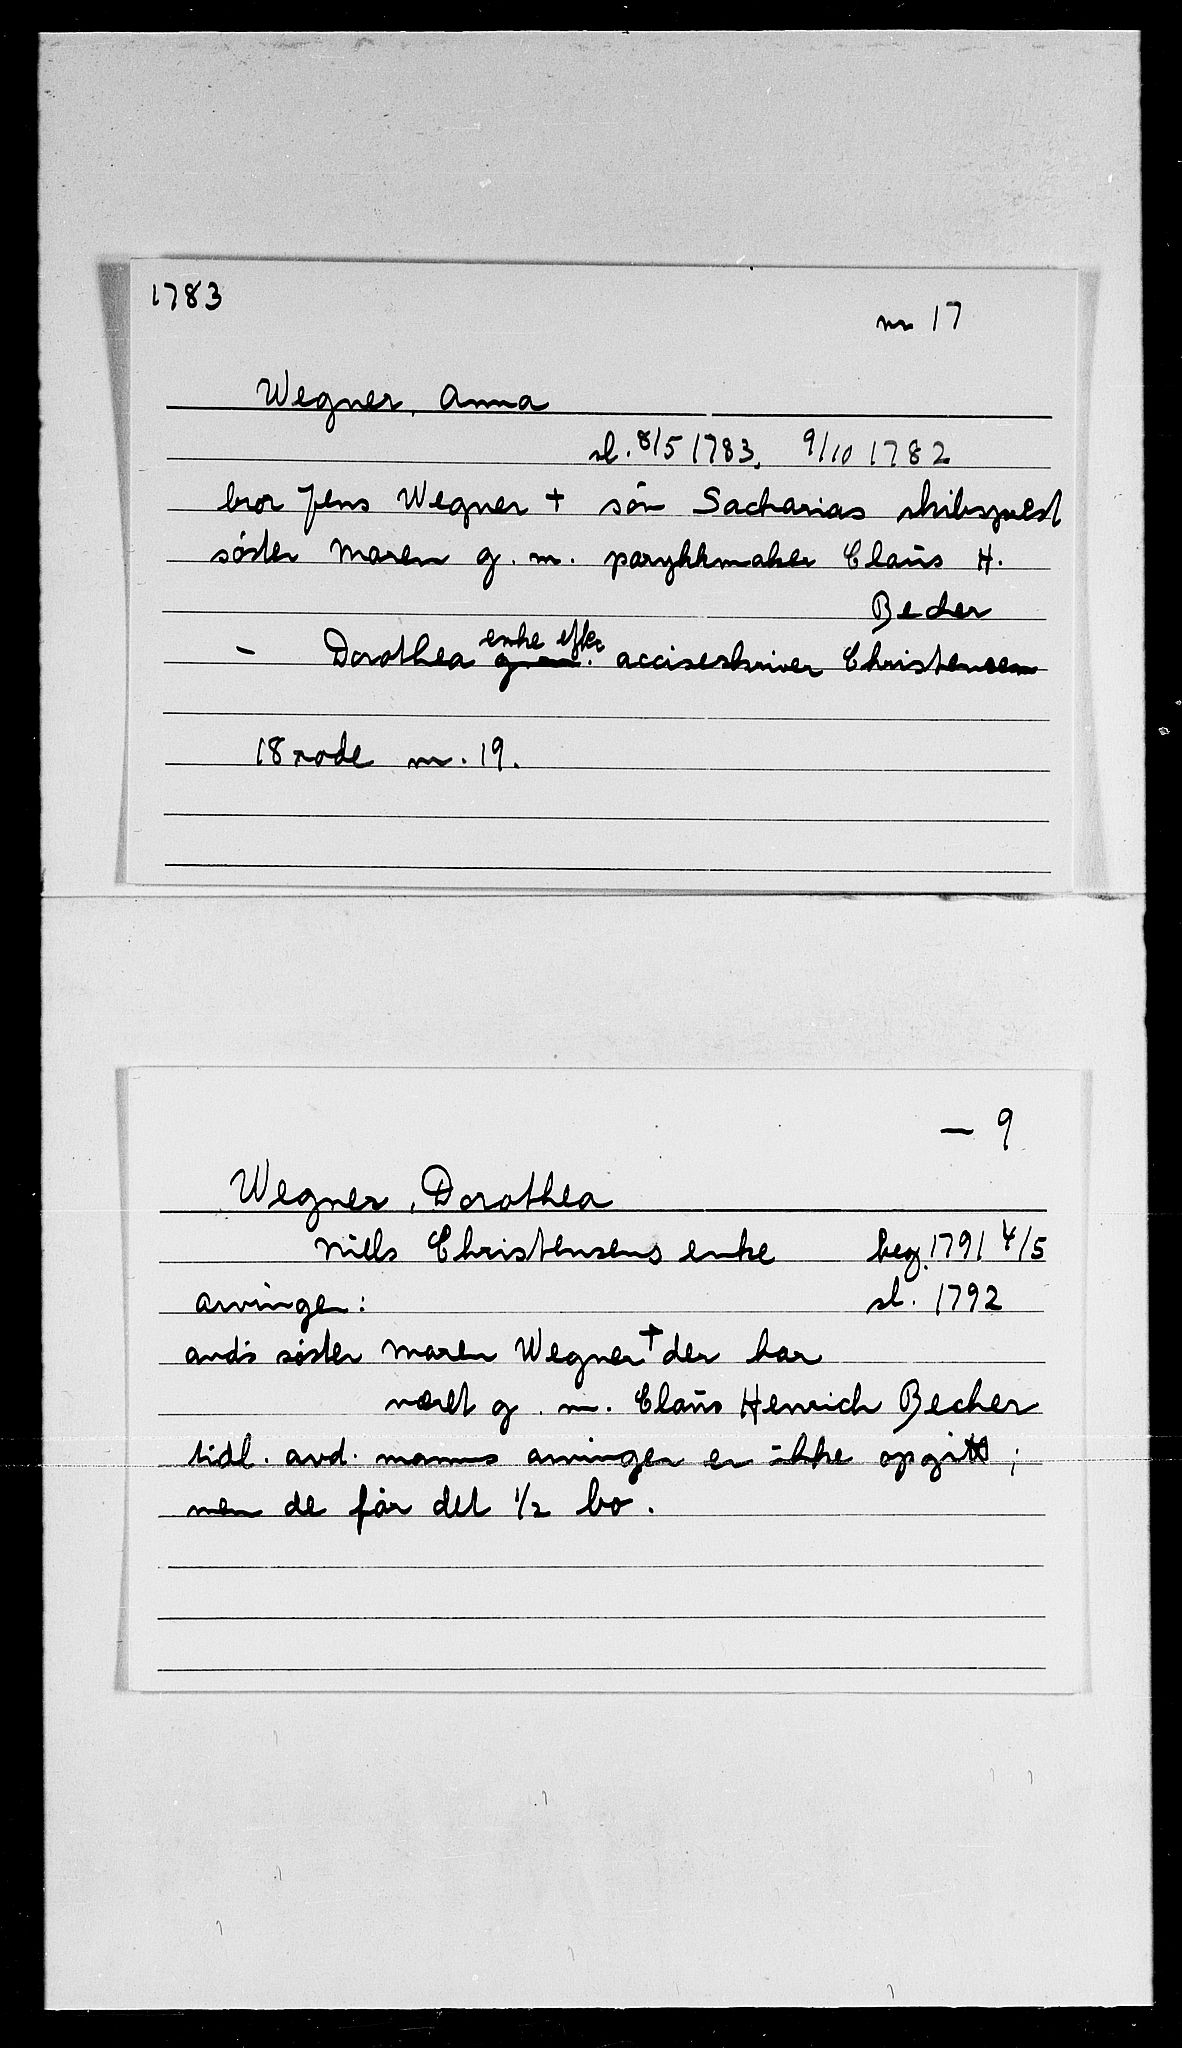 1783
nr 17
Wegner, Anna
sl. 8/5 1783. 9/10 1782
bror Jens Wegner + sön Sacharias skibsprest
söster Maren g. m. parykkmaker Claüs H.
Becher
- Dorothea g. m. enke efter acciseskriver Christensen
18 rode nr. 19.
- 9
Wegner, Dorothea
Nills Christensens enke beg. 1791 4/5
arvinger: sl. 1792
avd's søster Maren Wegner + der har
været g. m. Claüs Henrich Becher
tidl. avd. manns arvinger er ikke opgitt;
men de får det 1/2 bo.